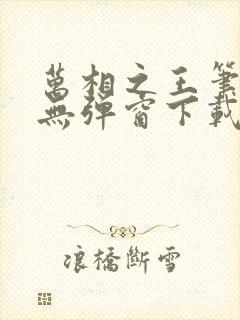 萬相之王筆
無彈窗下載
浪橋斷雪